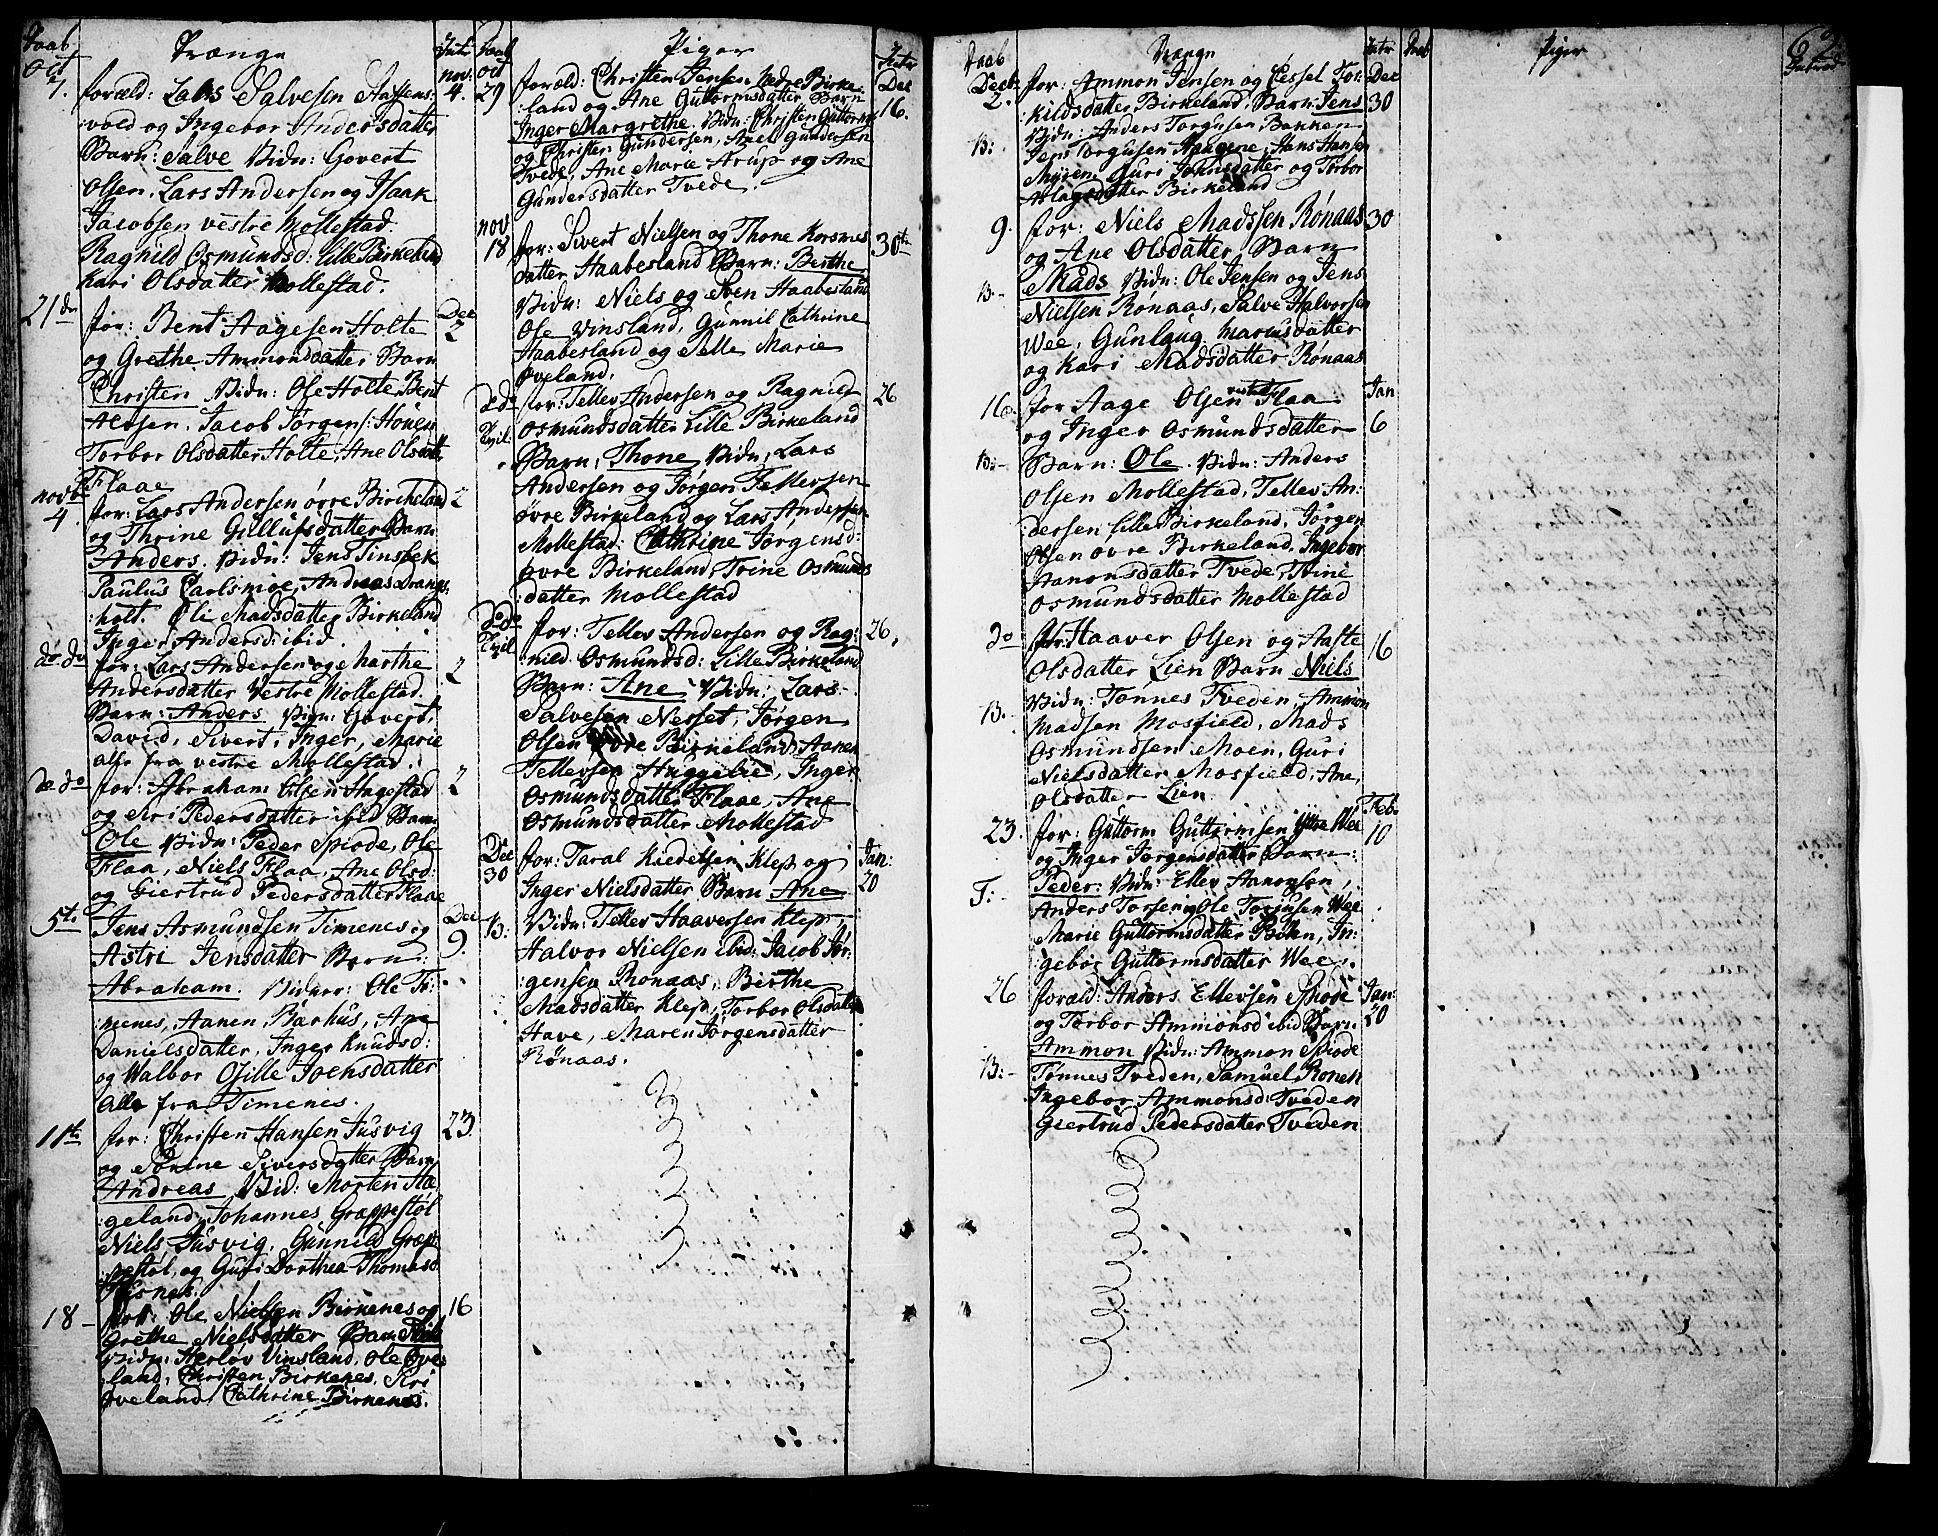 Daab
Oct
7.
Drænge
Intr
nov.
4.
foræld: Lars Salvesen Aassens-
:vold og Ingebor Andersdatter
Barn: Salve Vidn: Govert
Olsen, Lars Andersen og Isaak
Jacobsen vestre Mollestad.
Ragnild Osmundsd: Lille Birkeland
Kari Olsdatter Mollestad.
21de
for: Bent Aagesen Holte
Dec
2
og Grethe Ammondsdatter Barn
Christen Vidn: Ole Holte, Bent
Alfsen. Jacob Jørgens: Hönen
Torbor Olsdatter Holte, Ane Olsdatt
Flaae
novb
4.
for: Lars Andersen övre Birkeland
2
og Thrine Gullufsdatter Barn
Anders. Vidn: Jens Tinsbek
Paulus Carlsmoe, Andreas Drangs-
:holt. Oli Madsdatter Birkeland
Inger Andersd: ibid.
do do
for: Lars Andersen og Marthe
2
Andersdatter Vestre Mollestad.
Barn: Anders Vidn: Govert,
David, Sivert, Inger, Marie
alle fra vestre Mollestad.
do do
for: Abraham Olsen Hagestad
2
og Siri Pedersdatter ibid Barn
Ole Vidn: Peder Spiode, Ole
Flaa, Niels Flaa, Ane Olsd:
og Giertrud Pedersdatter Flaae
5te
Jens Asmundsen Timenes og
Dec
9.
Astri Jensdatter Barn:
Abraham. Vidner: Ole Ti-
:menes, Aanen Barhus, Ane
Danielsdatter, Inger Knudsd:
og Walbor Osille Jochsdatter
alle fra Timenes.
11te
for: Christen Hansen Justvig
23.
og Sörine Siversdatter Barn
Andreas Vid: Morten Aa-
geland, Johannes Græppestöl
Niels Justvig. Gunnild Græp-
:pestöl, og Guri Dorthea Thomasd
18
for: Ole Nielsen Birkenes og
16
Grethe Nielsdatter Barn Niels
Vidn: Herlöv Vinsland, Ole Ove-
:land, Christen Birkenes, Siri
Oveland, Cathrine Birkenes.
Daab
oct
29
Piger
Intr
Dec
16.
foræld: Christen Jensen Nedre Birke-
:land og Ane Guttormsdatter Barn
Inger Margrethe. Vidn: Christen Guttorms
og Christen Gundersen, Anel Gundersen
Tvede, Ane Marie Arup og Ane
Gundersdatter Tvede.
nov
18
for: Sivert Nielsen og Thone Korsmos
30te
datter Haabesland Barn: Berthe
Vidn: Niels og Sven Haabesland
Ole Vinsland, Gunnil Cathrine
Haabesland og Pelle Marie
Oveland.
do do
for: Tellev Andersen og Ragnild
26
Tvil.
Osmundsdatter Lille Birkeland
Barn: Thone Vidn: Lars
Andersen og Jørgen Tellevsen
övre Birkeland og Lars Andersen
Mollestad: Cathrine Jørgensd:
övre Birkeland, Trine Osmunds
:datter Mollestad
do do
Tvil
for: Tellev Andersen og Rag-
26.
:nild Osmundsd: Lille Birkeland
Barn: Ane Vidn: Lars
Salvesen Nesset, Jørgen
Olsen övre Birkeland, Aanen
Tellevsen Huggelie, Inger
Osmundsdatter Flaae, Ane
Osmundsdatter Mollestad
Dec
30
for: Taral Kiedelsen Klep og
Jan:
20
Inger Nielsdatter Barn Ane
B:
Vidn: Tellev Haaversen Klep,
Halvor Nielsen ibid: Jacob Jør-
gensen Rönaas, Berthe
Madsdatter Klep, Torbor Olsdatter
Have, Maren Jørgensdatter
Rönaas.
Daab
Dec
2.
Drænge
Intr
Dec
30
for: Ammon Jensen og Cessel Tor-
:kildsdatter Birkeland, Barn: Jens
Vidn: Anders Torgusen Bakken
B:
Jens Torgusen Haugene, Hans Hansen
Myren, Guri Johnsdatter og Torbor
Aslagsdatter Birkeland
9.
for: Niels Madssen Rönaas
30
og Ane Olsdatter Barn
B.-
Mads Vidn: Ole Jensen og Jens
Nielsen Rönaas, Salve Halvorsen
Wee, Gunlaug Mariusdatter
og Kari Madsdatter Rönaas
16.
for Aage Olsen vestre Flaa
Jan
6
og Inger Osmundsdatter
B:-
Barn: Ole. Vidn: Anders
Olsen Mollestad, Tellev An-
:dersen Lille Birkeland, Jørgen
Olsen övre Birkeland, Ingebor
Aanonsdatter Tvede, Trine
Osmundsdatter Mollestad
do
for: Haaver Olsen og Aaste
16
Olsdatter Lien Barn Niels
B.-
Vidn: Tönnes Tveden, Ammon
Madsen Mosfield, Mads
Osmundsen Moen, Guri
Nielsdatter Mosfield, Ane
Olsdatter Lien.
23.
for: Guttorm Guttormsen Yttre Wee
Feb.
10
og Inger Jørgensdatter Barn:
T:-
Peder: Vidn: Ellev Aanonsen,
Anders Torsen, Ole Torjusen Wee
Marie Guttormsdatter Böen, In-
:gebor Guttormsdatter Wee.
26
foræld: Anders Ellevsen Spiode
Jan:
20
og Torbor Ammonsd: ibid Barn
Ammon Vidn: Ammon Spiode
B:-
Tönnes Tveden, Samuel Ronen
Ingebor Ammonsd: Tveden
Giertrud Pedersdatter Tveden
Daab
Piger
62.
Introd